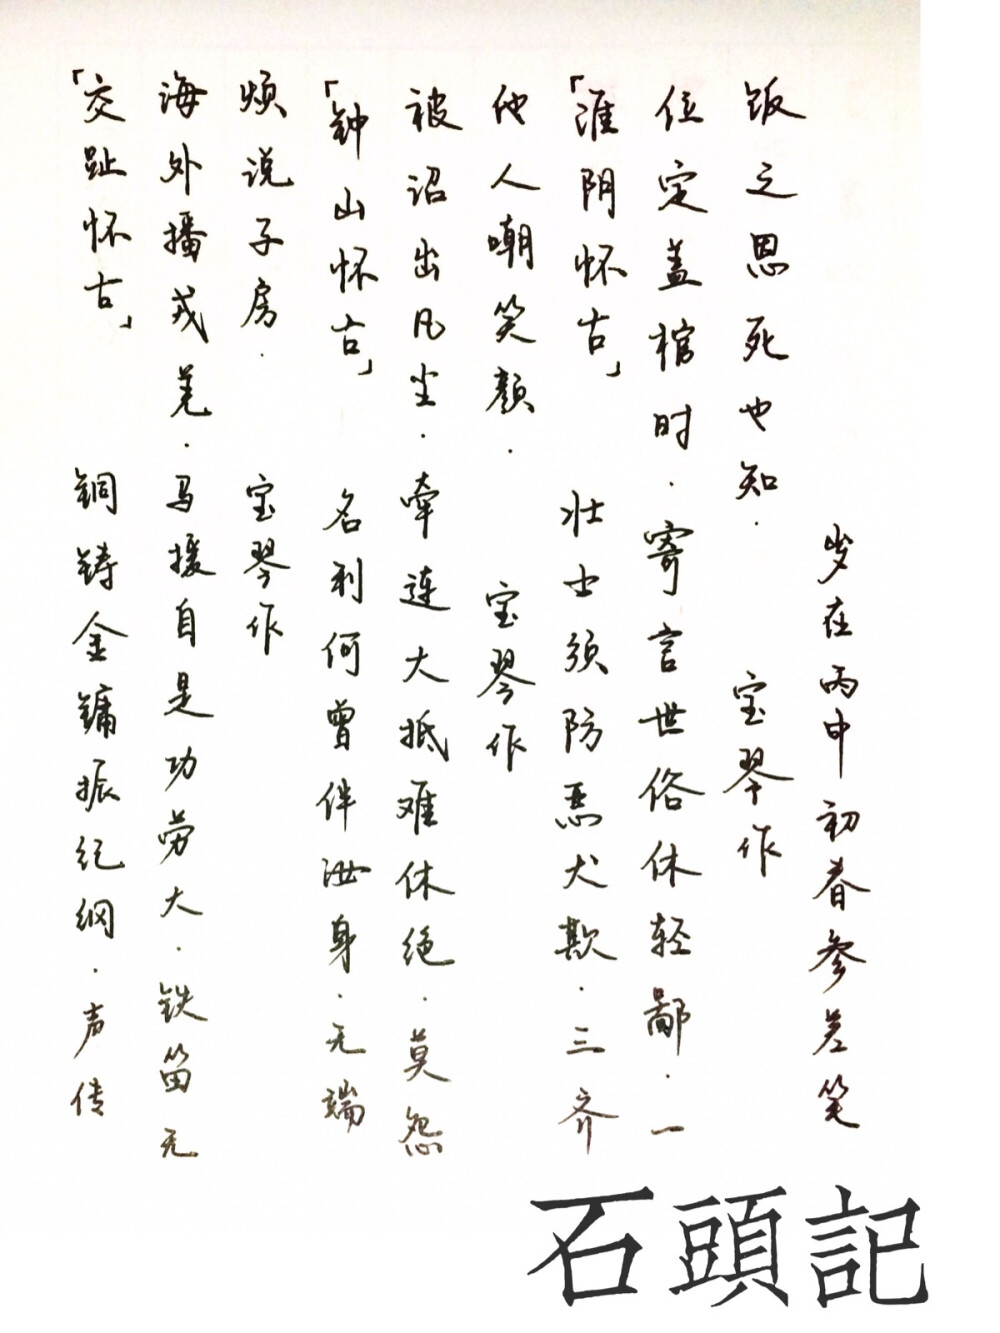 「交趾怀古」 铜铸金镛振纪纲．声传
海外播戎羌．马援自是功劳大．铁笛无
烦说子房． 宝琴作
「钟山怀古」 名利何曾伴汝身．无端
被诏出凡尘．牵连大抵难休绝．莫怨
他人嘲笑频． 宝琴作
「淮阴怀古」 壮士须防恶犬欺．三齐
位定盖棺时．寄言世俗休轻鄙．一
饭之恩死也知． 宝琴作
岁在丙申初春参差笔
石頭記